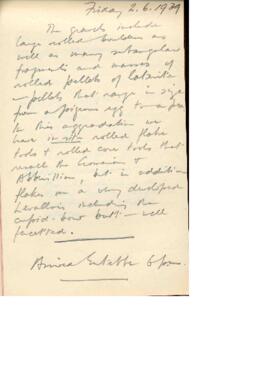 Friday 2.6.1939
The gravels include
large rolled boulders as
well as many subangular
fragments and masses of
rolled pellets of laterite
— pellets that range in size
from a pigeons egg to a pea
In this aggradation we
have in situ rolled flake
tools & rolled core tools that
recall the &
Abbevillian, but in addition
flakes on a very developed
Levallois including the
cupid-bow butt — well
facetted.
Arrived Entebbe 6 pm.